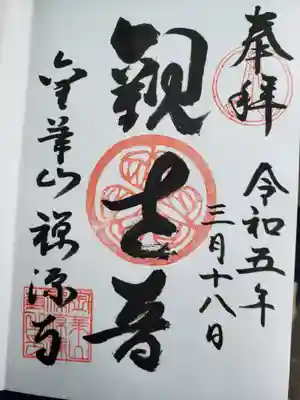 奉拝
令和五年
三月十八日
觀世音
金華山 禅源寺